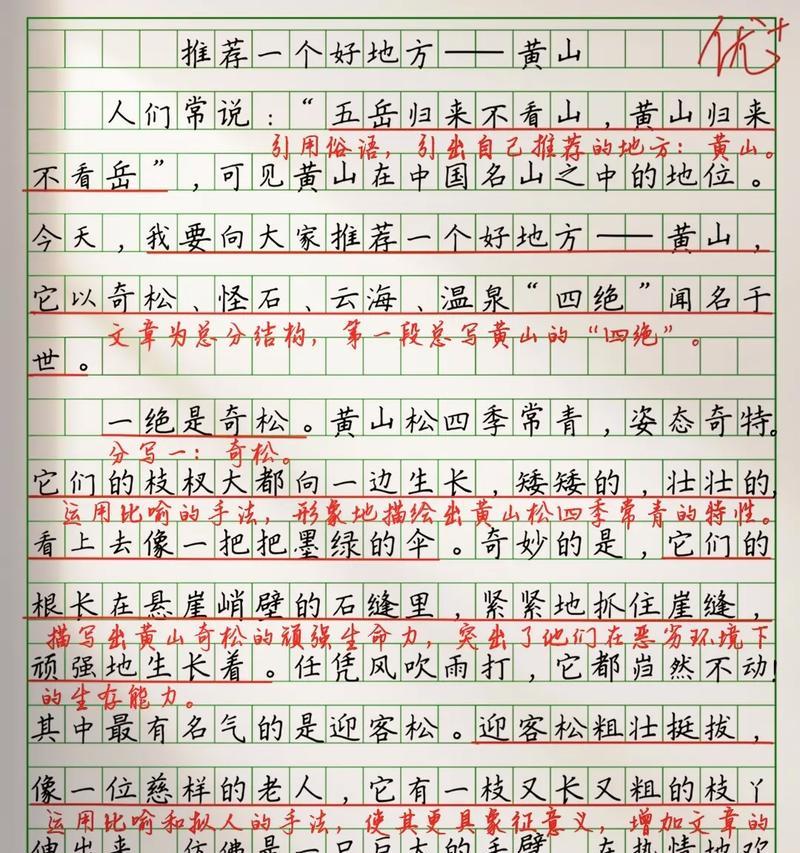 推荐一个好地方——黄山
优+
人们常说：“五岳归来不看山，黄山归来
引用俗语，引出自己推荐的地方：黄山。
不看岳”，可见黄山在中国名山之中的地位。
今天，我要向大家推荐一个好地方——黄山，
它以奇松、怪石、云海、温泉“四绝”闻名于
文章为总分结构，第一段总写黄山的“四绝”。
世。
一绝是奇松。黄山松四季常青，姿态奇特。
分写一：奇松。
它们的枝杈大都向一边生长，矮矮的，壮壮的，
运用比喻的手法，形象地描绘出黄山松四季常青的特性。
看上去像一把把墨绿的伞。奇妙的是，它们的
根长在悬崖峭壁的石缝里，紧紧地抓住崖缝，
描写出黄山奇松的顽强生命力，突出了他们在恶劣环境下
顽强地生长着。任凭风吹雨打，它都岿然不动！
的生存能力。
其中最有名气的是迎客松。迎客松粗壮挺拔，
像一位慈祥的老人，它有一枝又长又粗的枝丫
运用比喻和拟人的手法，使其更具象征意义，增加文章的
伸出来，仿佛是一只巨大的手臂，在热情地欢